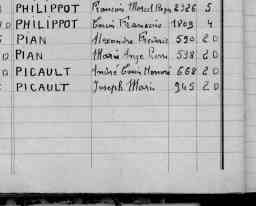 PHILIPPOT François Marcel 2326 5
PHILIPPOT Louis François 1803 4
PIAN Alexandre Frédéric 590 20
PIAN Marie Ange Pierre 538 20
PICAULT André Louis Honoré 668 20
PICAULT Joseph Marie 945 20